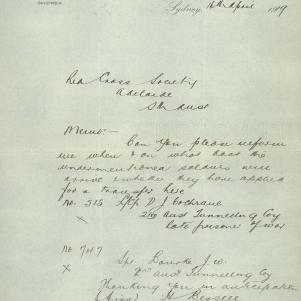 Sydney, 16th April 1919
Red Cross Society
Adelaide
Sth Aust
Memo:-
Can you please inform
me when & on what boat the
undermentioned soldiers were
above embark they have applied
for a transfer here
No. 515 D J Cochrane
2nd Aust Tunnelling Coy
late prisoner of war
No 7047
X Spr. J. W.
2nd Aust Tunnelling Coy
Thanking you in anticipation